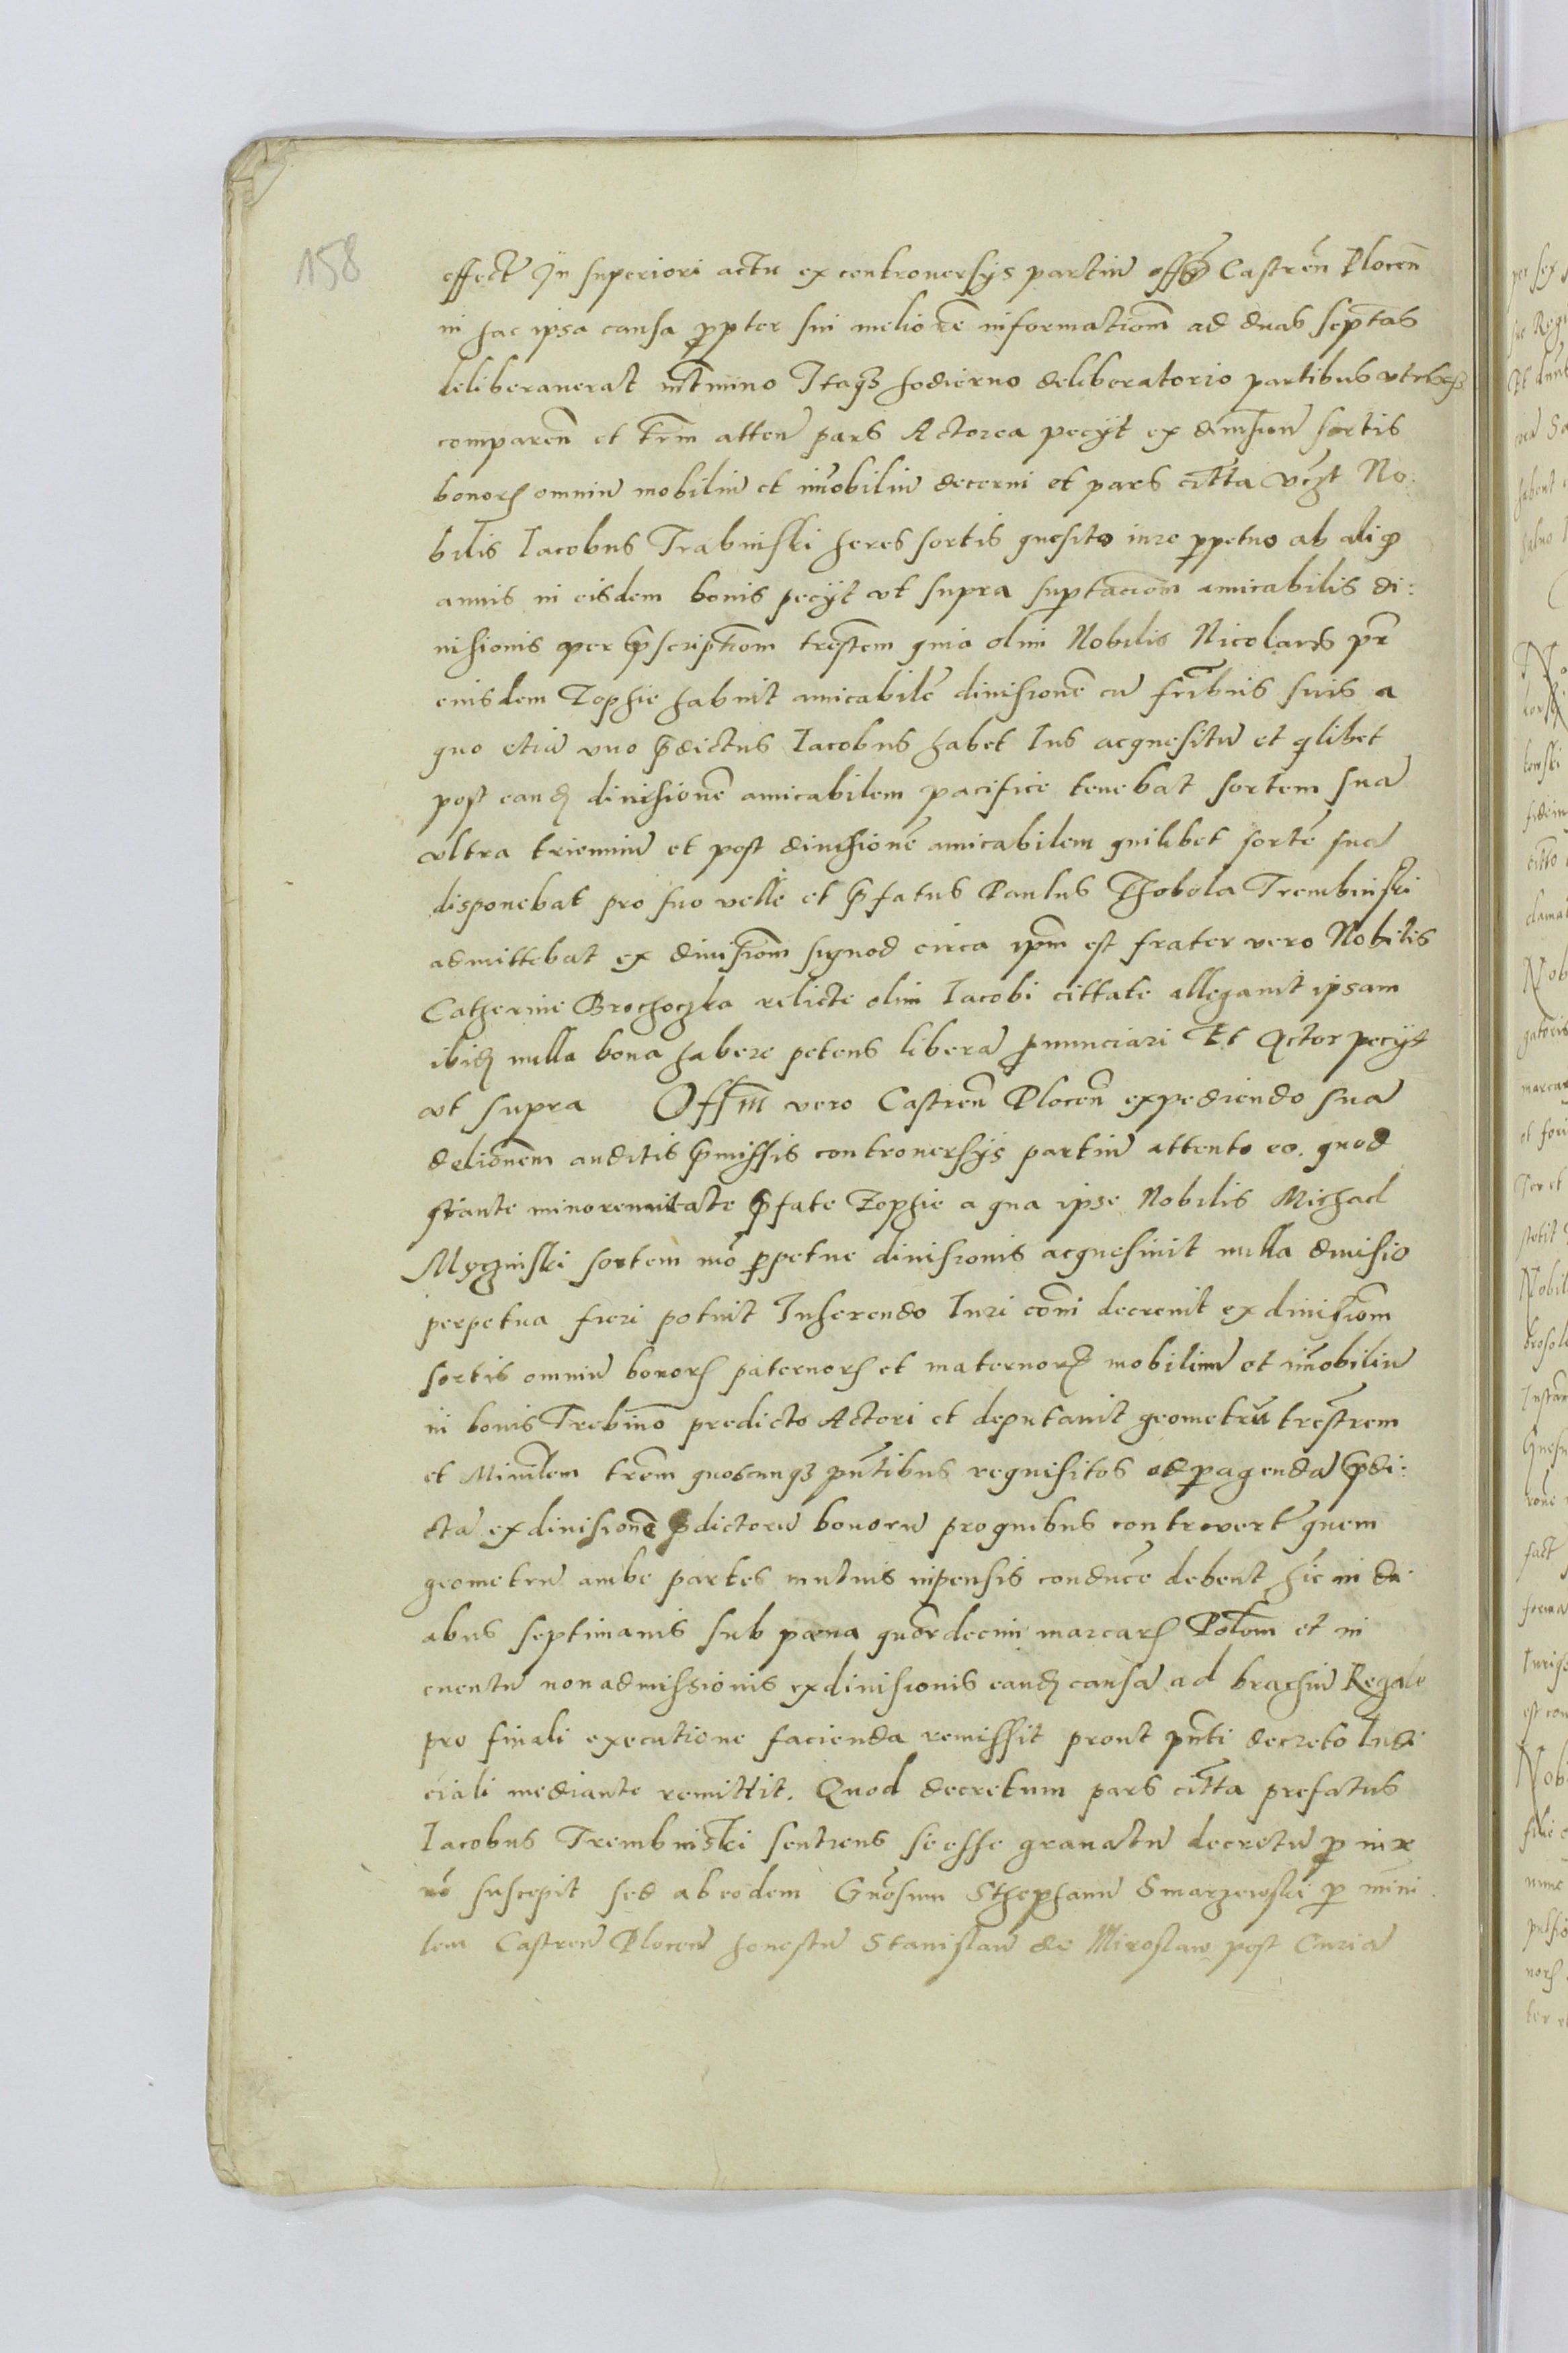 158
effect In superiori actu ex controversys partiu offm Castren Plocen
in hac ipsa causa propter sui meliore informationem ad duas septas
deliberaverat Itaq hodierno deliberatorio partibus utrisq
comparen et trm atten pars Actorea pecyt ex divisione sortis
bonor omniu mobiliu et imobiliu decerni et pars citta vczt No
bilis Iacobus Trabinski heres sortis quesito iure perpetuo ab aliquo
annis in eisdem bonis pecyt ut supra amicabilis di:
visionis per prescriptiom trestrem quia olim Nobilis Nicolaus pr
eiusdem Zophie habuit amicabile divisione cu fribus suis a
quo etia uno predictus Iacobus habet Ius acquesitu et quilibet
post eand divisione amicabilem pacifice tenebat sortem sua
ultra trienniu et post divisione amicabilem quilibet sorte sua
disponebat pro suo velle et prefatus Paulus Thobola Trembinski
admittebat ex divisiom siquod circa ipm est frater vero Nobilis
Catherine Brochoczka relicte olim Iacobi cittate allegavit ipsam
ibid nulla bona habere petens libera pronunciari Et Actor pecyt
ut supra Offm vero Castren Plocen expediendo sua
delionem auditis premissis controversys partiu attento eo. quod
stante minorennitate prefate Zophie a qua ipse Nobilis Michael
Myczinski sortem mo perpetue divisionis acquesivit nulla divisio
perpetua fieri potuit Inherendo Iuri comi decrevit exdivisiom
sortis omniu bonor paternor et maternor mobiliu et imobiliu
in bonis Trebino predicto Actori et deputavit geometru trestrem
et Minilem trem quoscunq pntibus requisitos ad peragenda predi:
cta exdivisione predictoru bonoru pro quibus controvert quem
geometru ambe partes mutuis inpensis conduce debent hic in du
abus septimanis sub pœna quordecim marcar Polom et in
eventu non admissionis exdivisionis eand causa ad brachiu Regale
pro finali executione facienda remissit prout pnti decreto Iudi
ciali mediante remittit. Quod decretum pars citta prefatus
Iacobus Trembinski sentiens se esse gravatu decretu pro
no suscepit sed ab eodem Gnosum Sthephanu Smarzewski p mini
lem Castren Plocen honestu Stanislau de Miroslaw post Curia